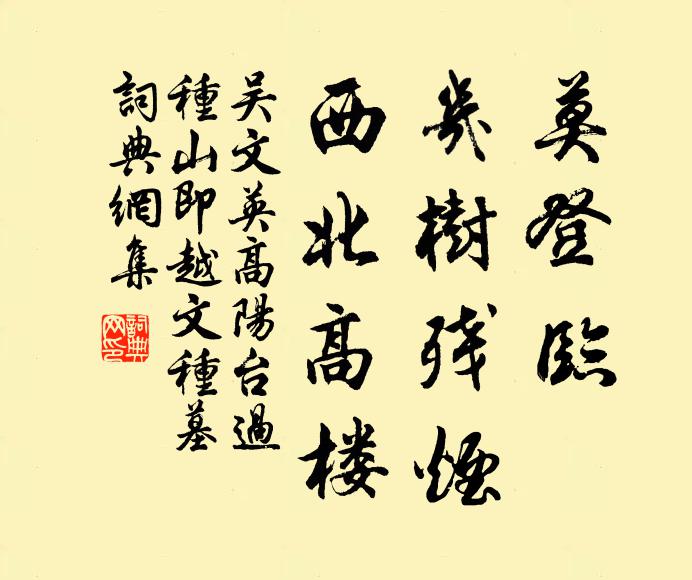 莫登臨
幾樹残煙
西北高楼
吴文英高陽台過
種山即越文種墓
詞典網集
詞典
网印